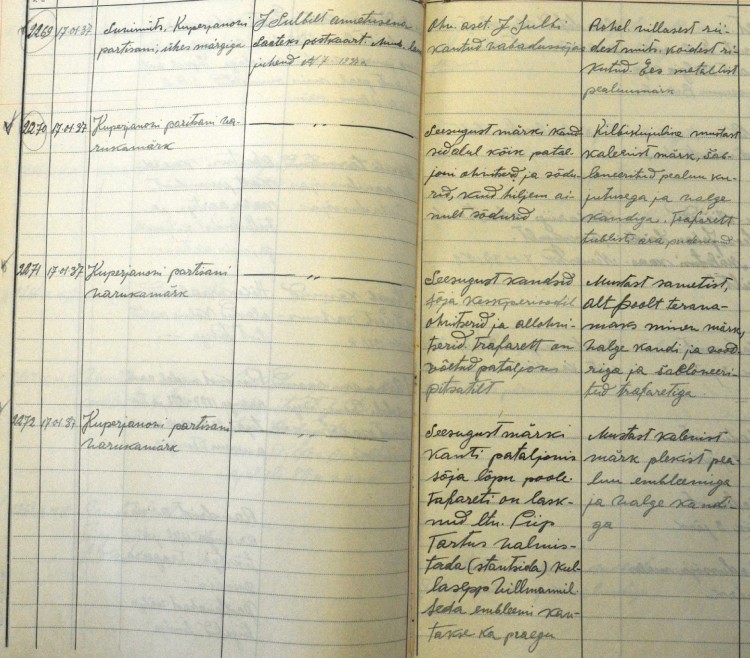 2269 17.01.37 Surimüts, Kuperjanovi
partisani, ühes märgiga
J. Sulbilt annetusena
Saateks postkaart. Muud. la
juhend N 7
Ohv. aset. J. Sulbi
kantud vabadussõjas
Rohel. villasest rii-
dest müts, koidest ri-
kutud. Ees metallist
pealuumärk
2270 17.01.37 Kuperjanovi partisani va-
rukamärk
— „ —
Seesugust märki kand
sid alul kõik patal-
joni ohvitserid ja sõdu-
rid, kuid hiljem ai-
nult sõdurid
Kilbikujuline mustast
kalevist märk, šab-
loneeritud pealuu ku-
jutusega ja valge
kandiga. Trafarett
tublisti ära pudenend
2271 17.01.37 Kuperjanovi partisani
varukamärk
— „ —
Seesugust kandsid
sõja keskperioodil
ohvitserid ja allohvi-
tserid. Trafarett on
võetud pataljoni
pitsatilt
Mustast sametist,
alt poolt terava-
maks minev märk,
valge kandi ja vood-
riga ja šabloneeri-
tud trafaretiga
2272 17.01.37 Kuperjanovi partisani
varukamärk
— „ —
Seesugust märki
kanti pataljonis
sõja lõpu poole.
Trafareti on lask-
nud ltn. Piip
Tartus valmis-
tada (stantsida) kul-
lasepp Villmannil.
Seda embleemi kan-
takse ka praegu
Mustast kalevist
märk plekist pea-
luu embleemiga
ja valge kandi-
ga